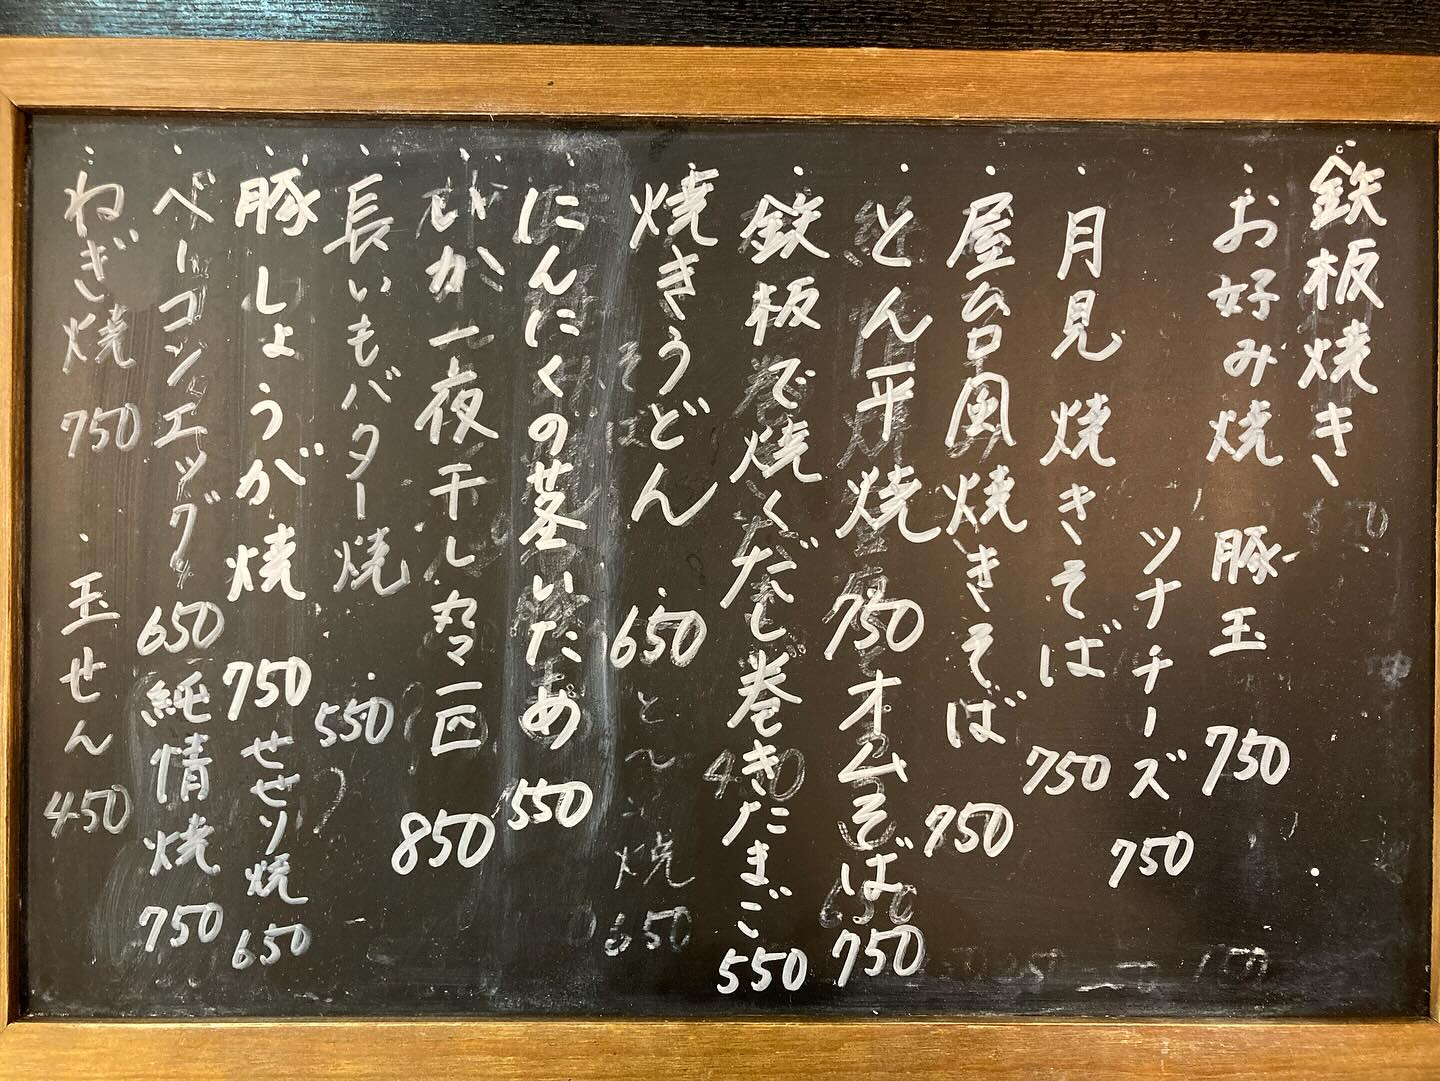 鉄板焼き
お好み焼 豚玉 750
ツナチーズ 750
月見焼きそば 750
屋台風焼きそば 750
とん平焼 750
オムそば 750
鉄板で焼くだし巻きたまご 550
焼きうどん 650
焼 650
にんにくの茎いため 550
いか一夜干し丸々一匹 850
長いもバター焼 550
豚しょうが焼 750
せせり焼 650
ベーコンエッグ 650
純情焼 750
ねぎ焼 750
玉せん 450